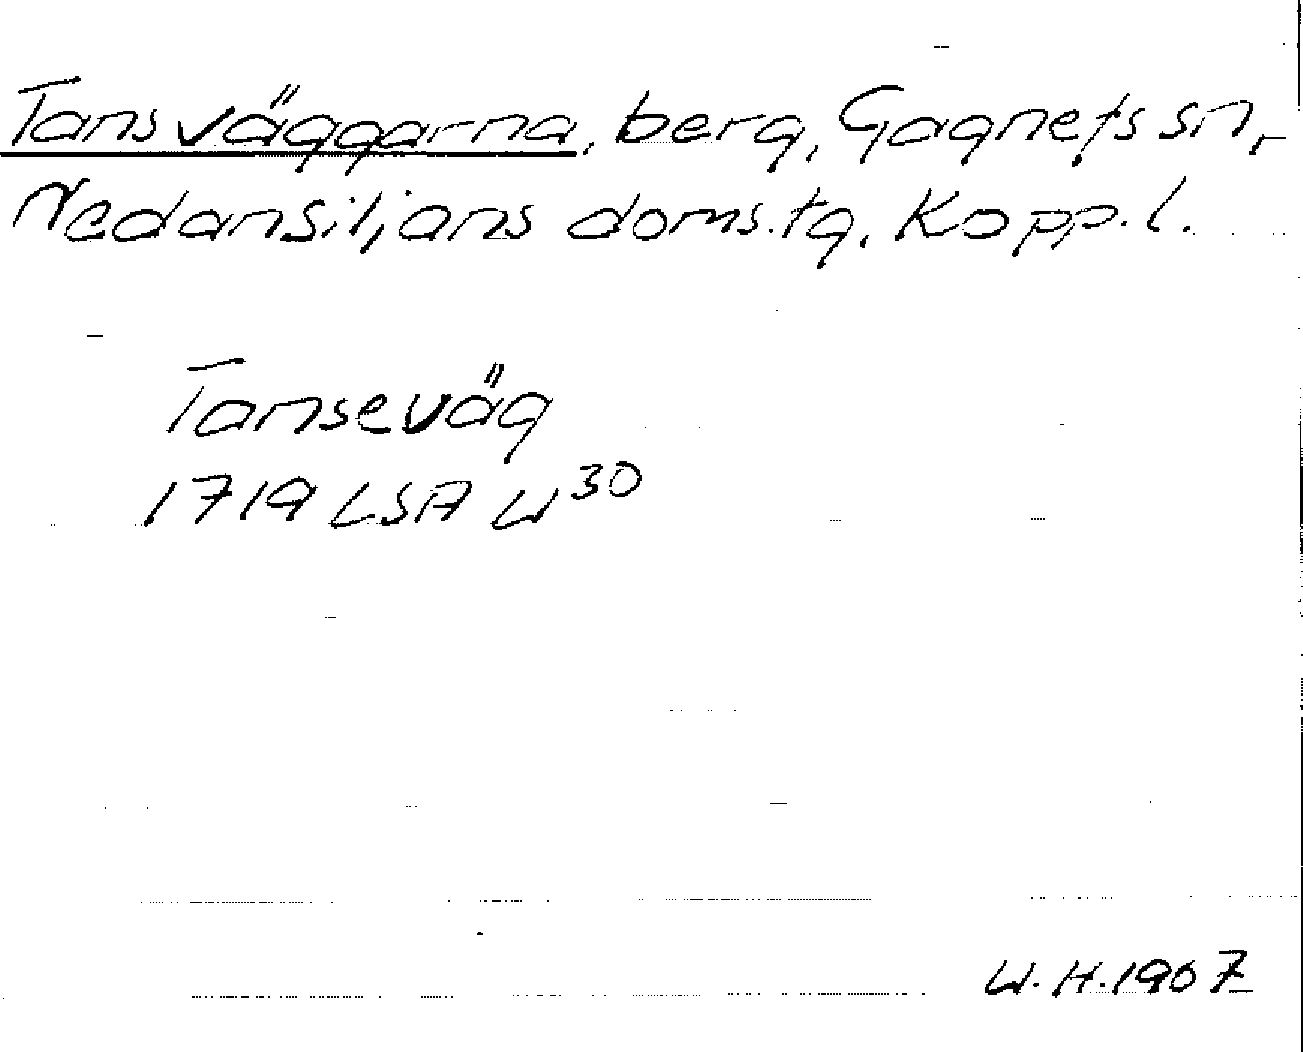 Tansväggarna, berg, Gagnefs sn,
Nedansiljans doms.tg, Kopp.l.
Tanseväg
1719 LSA W 30
W.H.1967